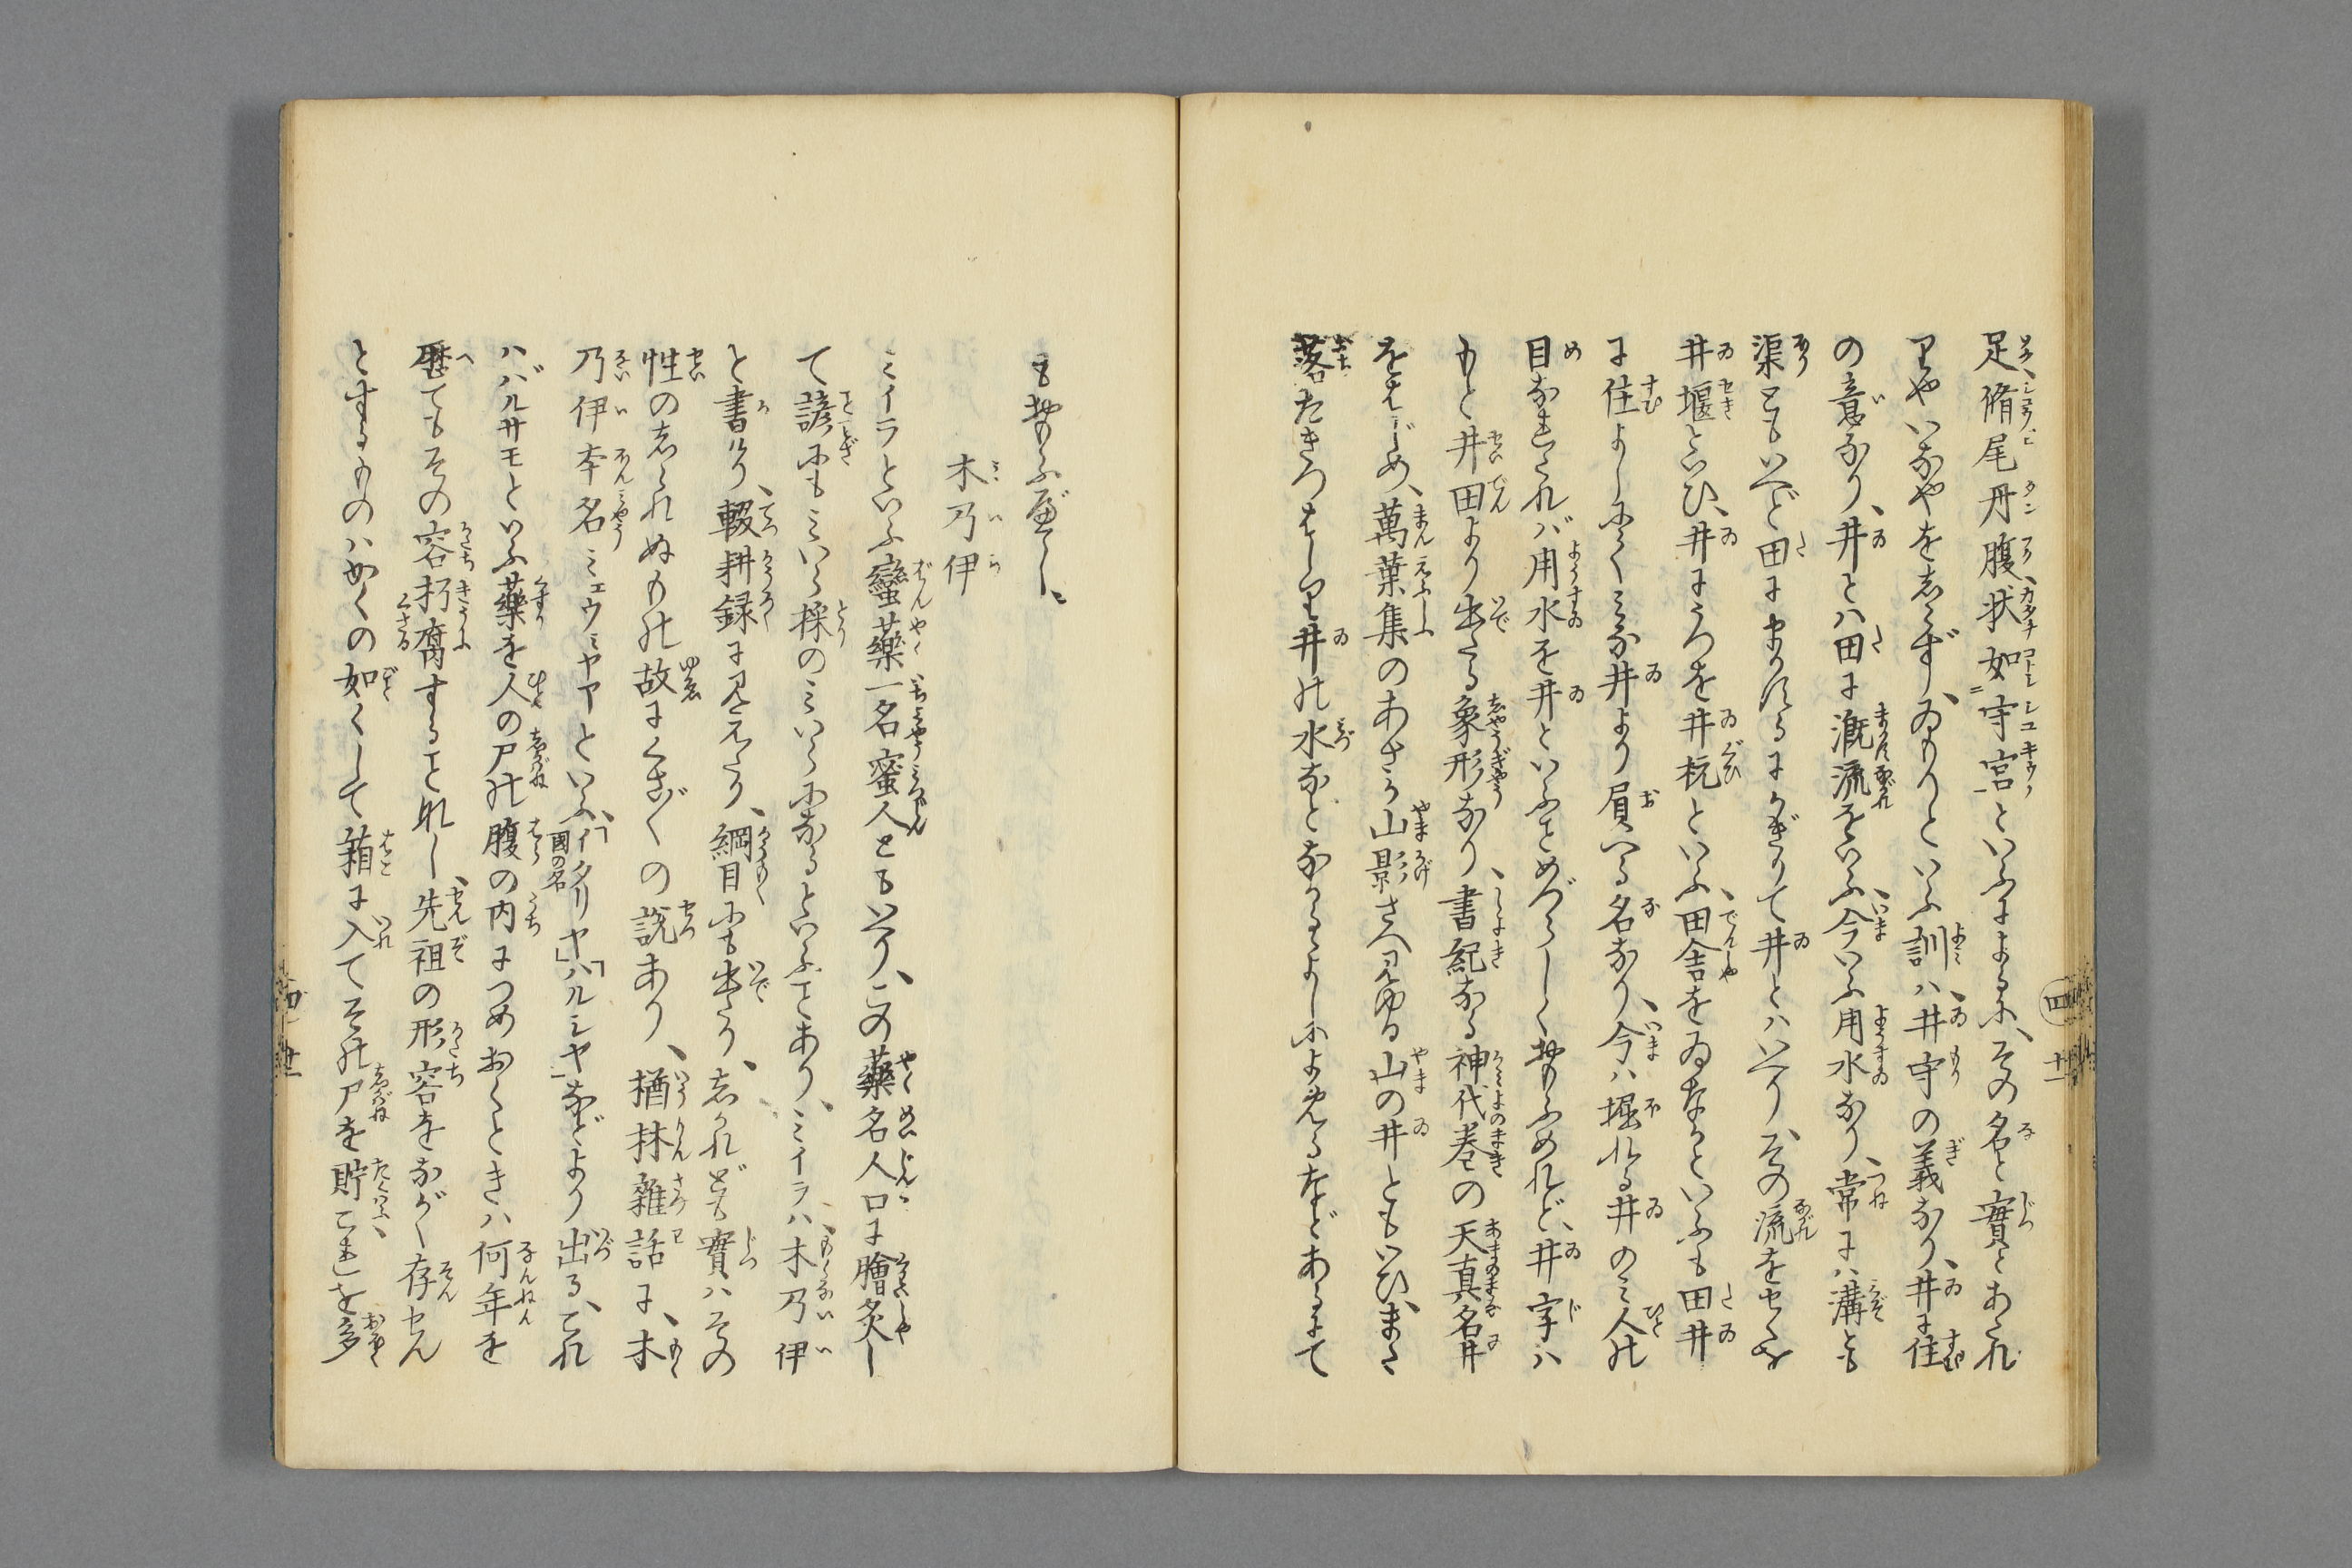 足脩尾丹腹状如守宮といふによるに、その名と實とあはれ
りやいなやをしらず、ゐもりといふ訓ハ、井守の義なり、井に住
の意なり、井とハ田に漑流をいふ、今いふ用水なり、常にハ溝とも
渠ともいへど田にまかするにかぎりて井とハいへり、その流をせくを
井堰といひ、井にうつを井杭といふ、田舎をゐなかといふも田井
に住よしにてみな井より屓へる名なり、今ハ堀れる井のミ人の
目なれたれバ用水を井といふはめづらしく
もと井田より出たる象形なり、書紀なる神代巻の天真名井
をはじめ、萬葉集のあさか山影さへ見ゆる山の井ともいひ、また
落たきつはしり井の水なと
も
木乃伊
ミイラといふ蠻藥一名蜜人ともいへり、この藥名人口に膾炙し
て諺にもミいら採のミいらになるといふことあり、ミイラハ、木乃伊
と書り、輟耕録に見えたり、綱目にも出たり、しかれども實ハその
性のしられぬもの故にくさ〴〵の説あり、楢林雜話に、木
乃伊本名ミエウミヤアといふ、「イタリヤ」國の名「ハルシヤ」などより出る、これ
ハバルサモといふ藥を人の尸の腹の内につめおくときハ何年を
歴てもその容朽腐すること〻れし、先祖の形容をながく存せん
とするものハかくの如くして箱に入てその尸を貯、これを多
四 十一